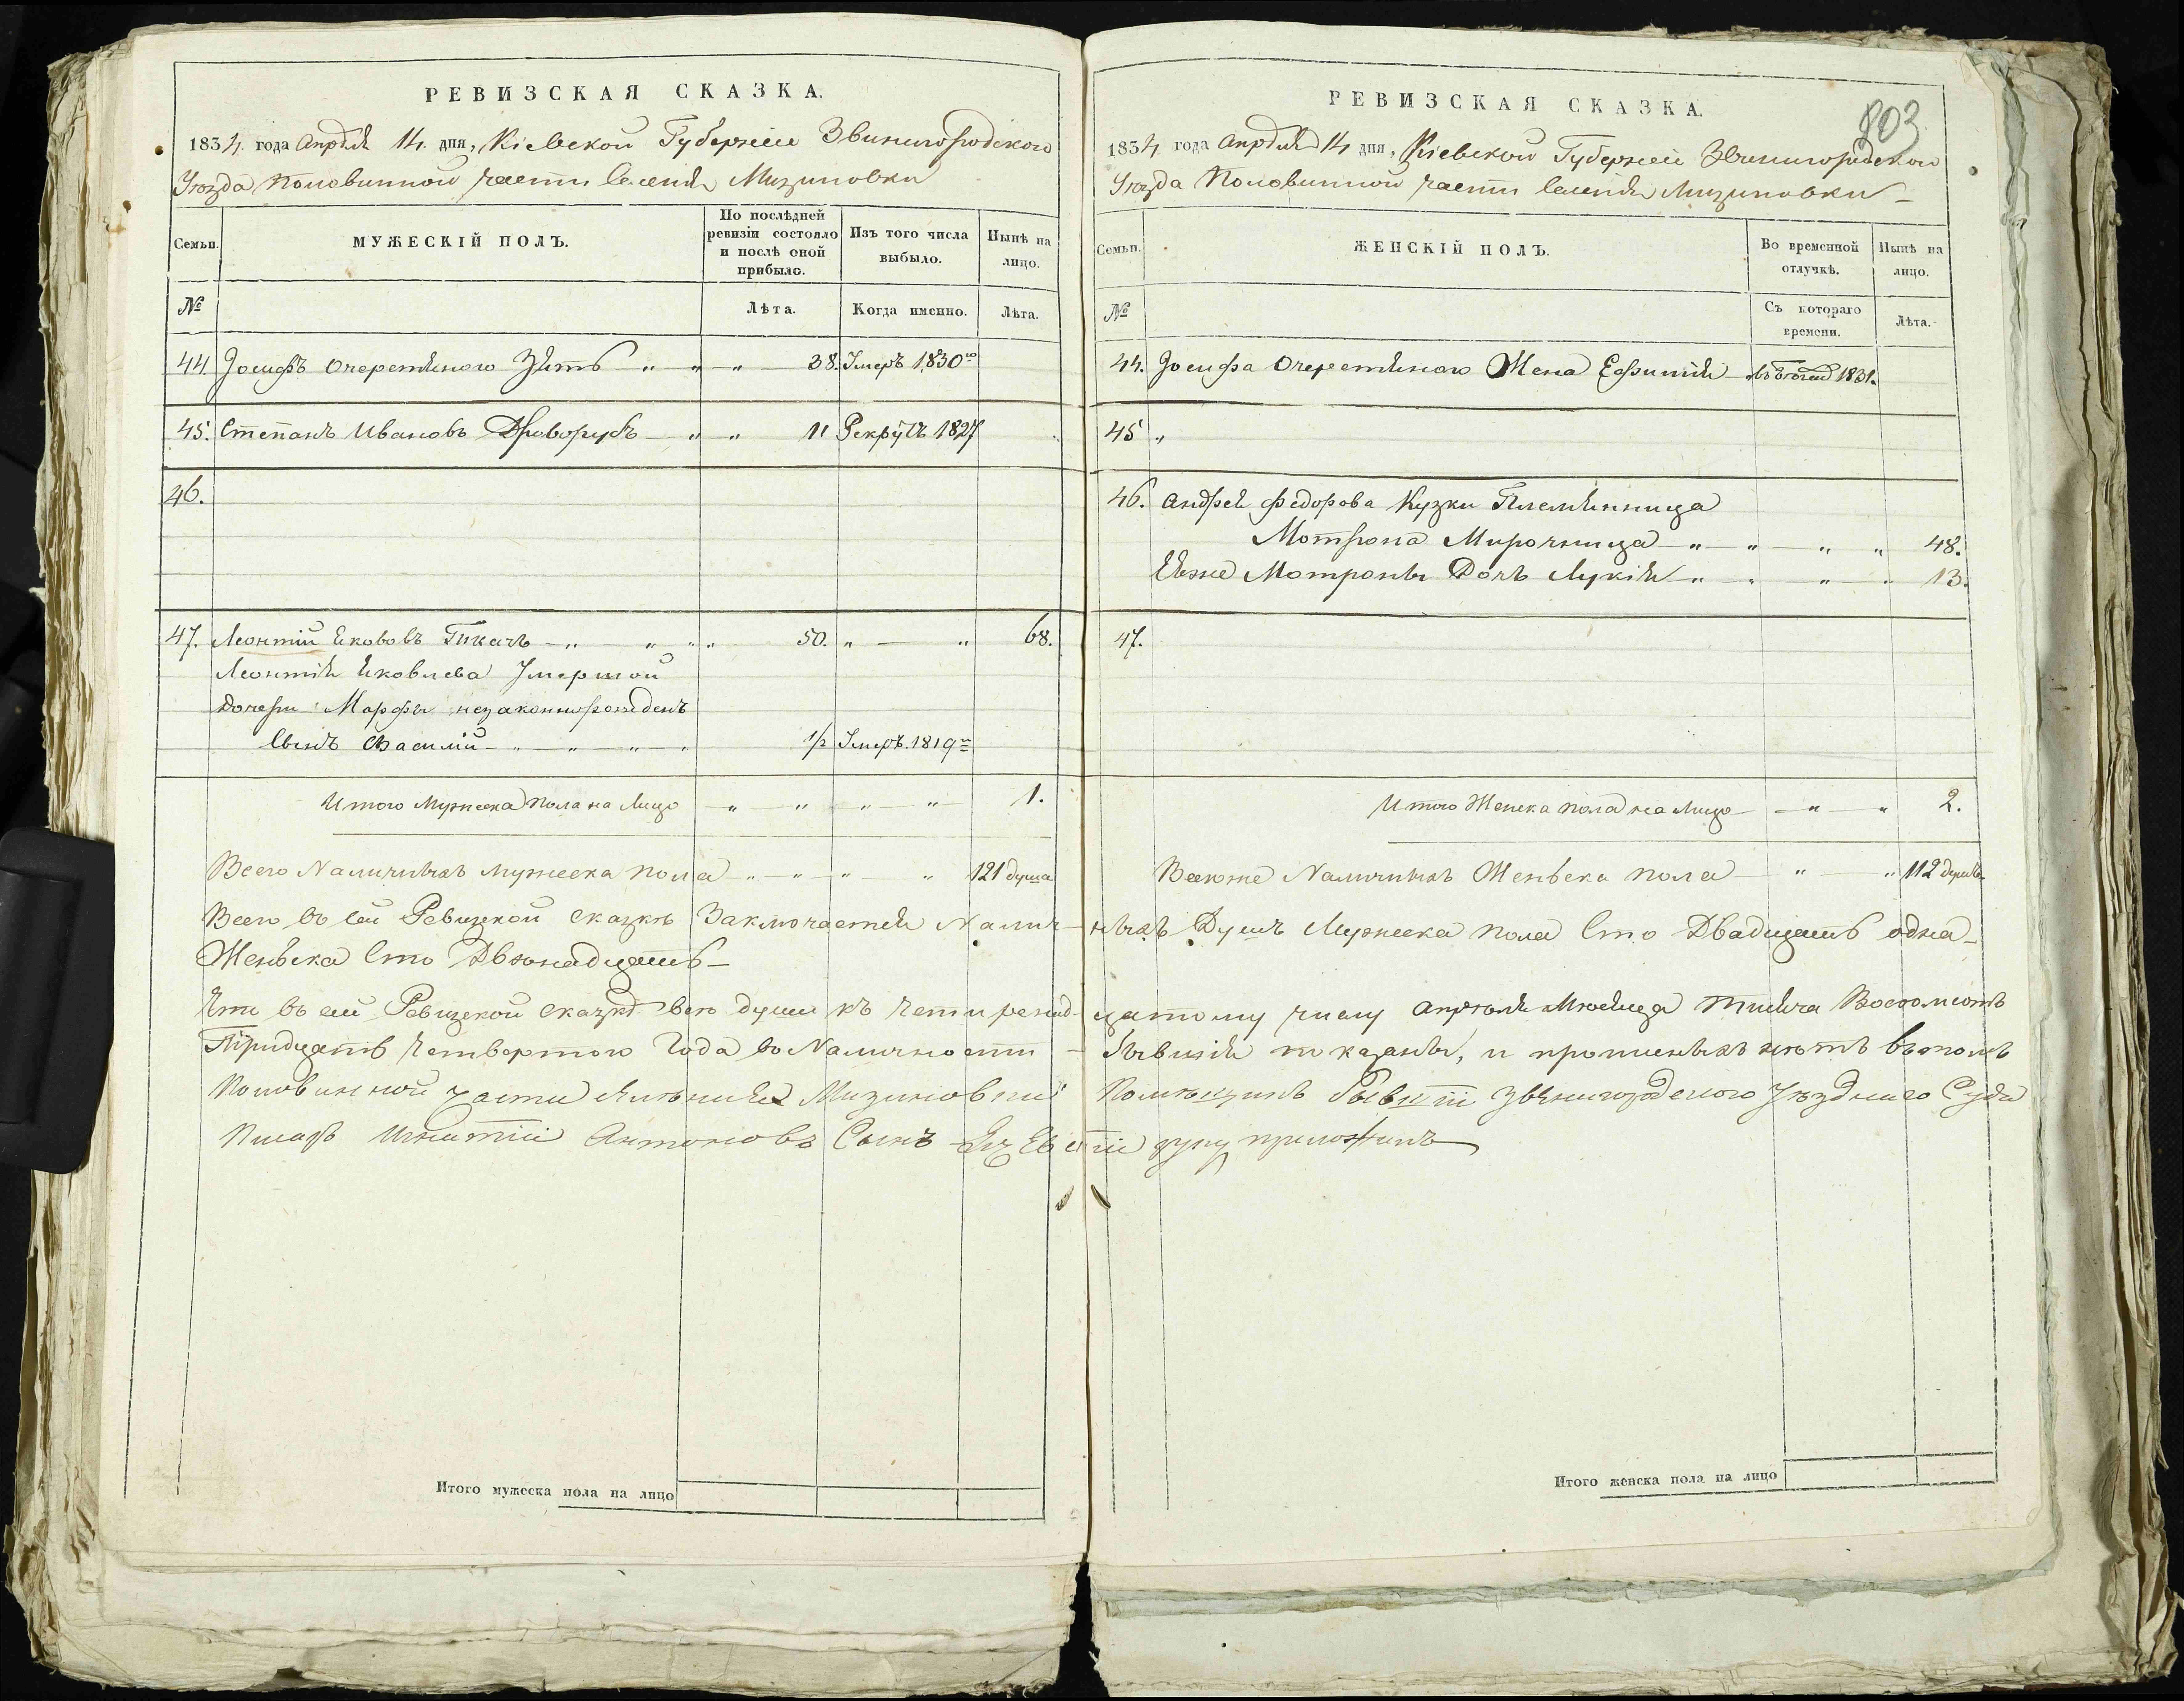 РЕВИЗСКАЯ СКАЗКА.
1834 года Апреля 14 дня, Кіевской Губерніи Звинигородского
Уезда Половинной части селенія Мизиновки
Семьи.
МУЖЕСКІЙ ПОЛЪ.
По послѣдней ревизіи состояло и послѣ оной прибыло.
Изъ того числа выбыло.
Нынѣ на лицо.
№
Лѣта.
Когда именно.
Лѣта.
44 Іосифъ Очеретяного Зять " " " 38. Умеръ 1830го
45. Степанъ Ивановъ Дроворубъ " " 11 Рекрутъ 1827
46.
47. Леонтій Якововъ Ткачъ " " " " 50. " " 68.
Леонтія Яковлева Умершой
дочери Марфы незаконнорожденъ
Сынъ Василій " " " " 1/2 Умеръ 1819го
Итого Мужеска Пола на Лицо " " " " 1.
Всего Наличныхъ мужеска пола " " " " 121 душа
РЕВИЗСКАЯ СКАЗКА.
803
1834 года Апреля 14 дня, Кіевской Губерніи Звинигородского
Уезда Половинной части селенія Мизиновки
Семьи.
ЖЕНСКІЙ ПОЛЪ.
Во временной отлучкѣ.
Нынѣ на лицо.
№
Съ котораго времени.
Лѣта.
44. Іосифа Очеретяного Жена Ефимія 1831.
45 "
46. Андрея Федорова Кузки Племянница
Мотрона Мирочница " " " " 48.
Ея же Мотроны Дочь Лукія " " " " 13.
47.
Итого Женска пола на Лицо " " 2.
Всехже Наличныхъ Женьска пола " " 112 душъ
Всего въ сей Ревизкой сказкѣ Заключается Наличныхъ Душъ Мужеска пола Сто Двадцать одна
Женьска Сто Двенадцать
Что въ сей Ревизкой сказкѣ все души къ Четыренадцатому числу Апреля Месяца Тысяча Восемсотъ
Тридцать Четвертого Года въ Наличности Ревизіи показаны, и прописныхъ нѣтъ въ томъ
Половинной части Мизиновкы Помещикъ Бывшій Звенигородского Уѣздного Суда
Писарь Игнатій Антоновъ Сынъ руку приложилъ
Итого мужеска пола на лицо
Итого женска пола на лицо